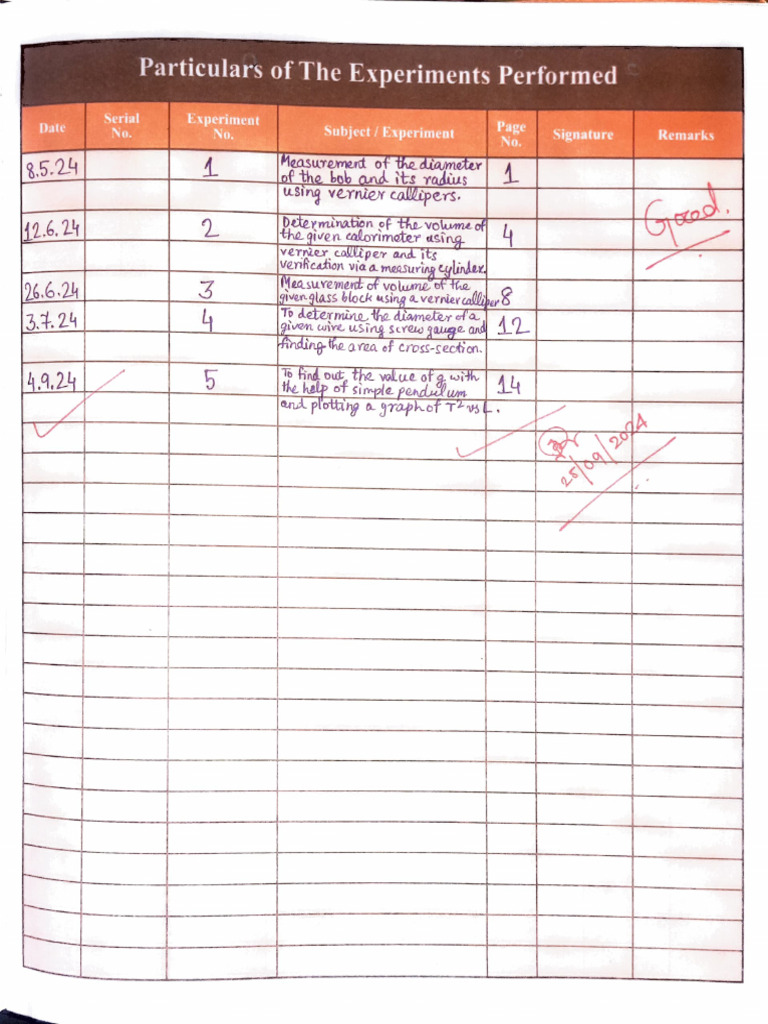 Particulars of The Experiments Performed
Date Serial No. Experiment No. Subject / Experiment Page No. Signature Remarks
8.5.24 1 Measurement of the diameter 1
of the bob and its radius
using vernier callipers.
Good.
12.6.24 2 Determination of the volume of 4
the given calorimeter using
vernier calliper and its
verification via a measuring cylinder.
26.6.24 3 Measurement of volume of the 8
given glass block using a vernier calliper
3.7.24 4 To determine the diameter of a 12
given wire using screw gauge and
finding the area of cross-section.
4.9.24 5 To find out the value of g with 14
the help of simple pendulum
and plotting a graph of T² vs L.
25/09/2024